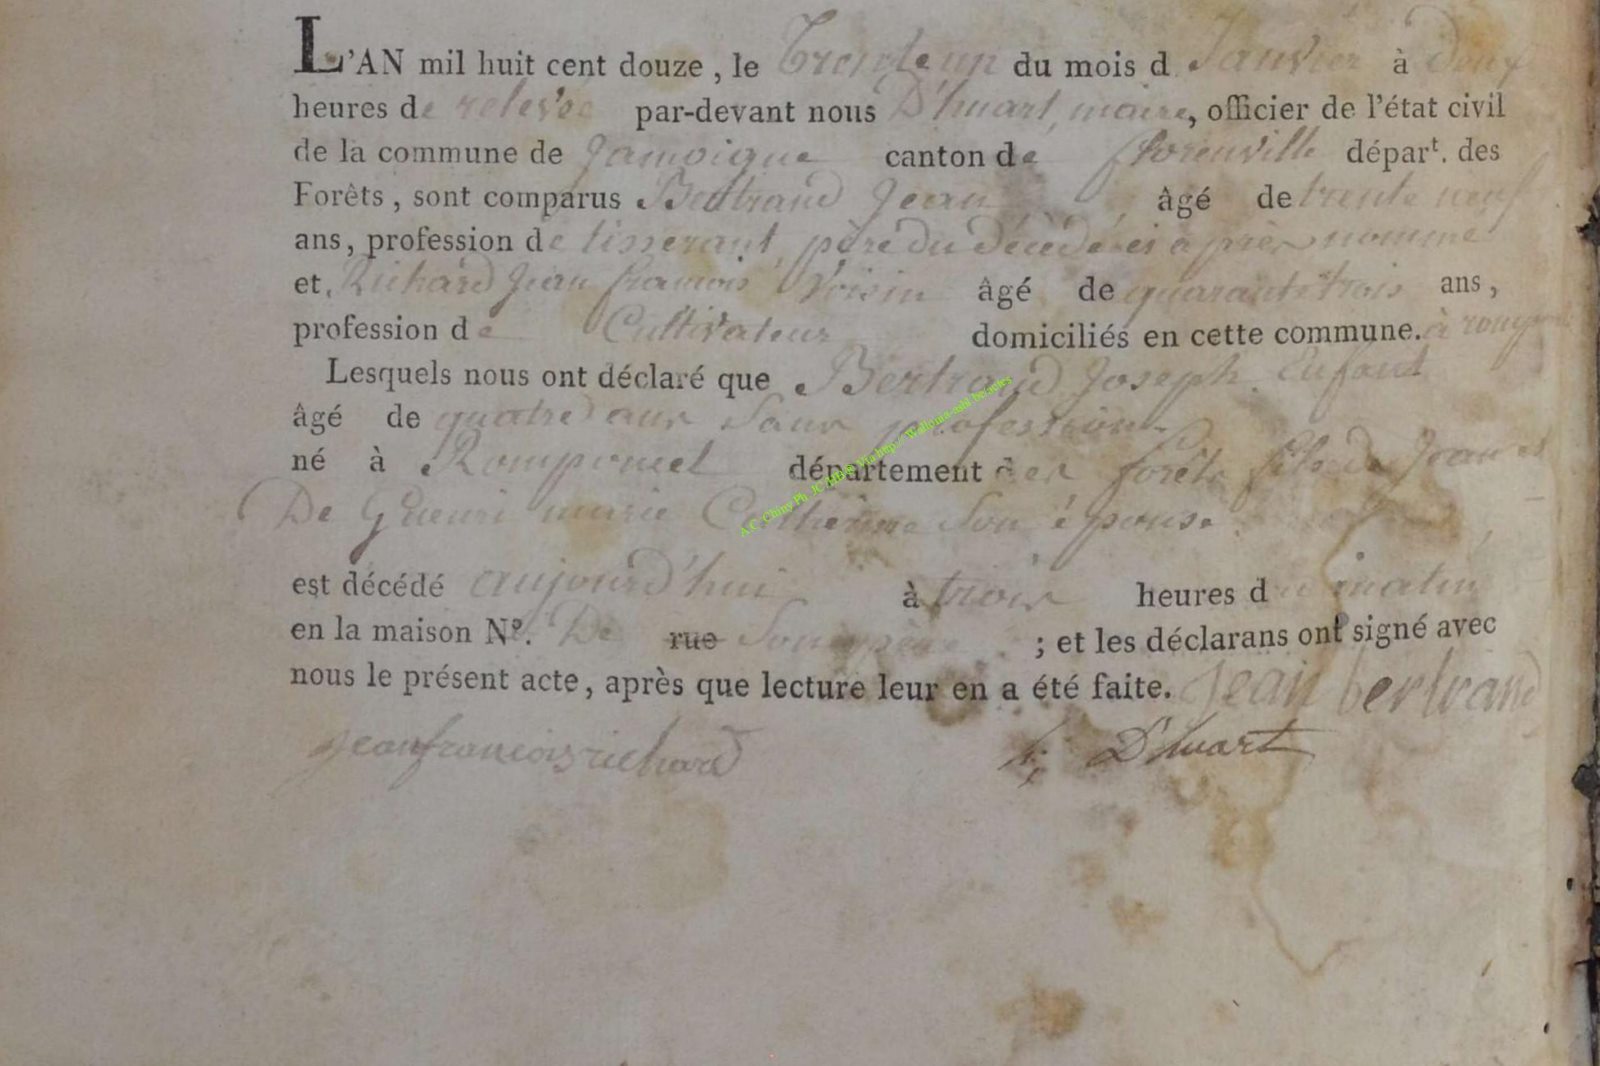 L'AN mil huit cent douze, le Trente un du mois d Janvier à deux
heures de relevée par-devant nous D'huart, maire, officier de l'état civil
de la commune de Jamoigne canton de florenville départ. des
Forêts, sont comparus Bertrand Jean âgé de trente neuf
ans, profession de tisserant, père du décédé ci après nommé
et, Richard Jean francois Voisin âgé de quarante trois ans,
profession de Cultivateur domiciliés en cette commune. à
Lesquels nous ont déclaré que Bertrand Joseph Enfant
âgé de quatre ans Sans profession
né à Romponcel département des forêts fils de Jean et
De Marie Catherine Son épouse
est décédé aujourd'hui à trois heures du matin
en la maison N°. De rue Son père ; et les déclarans ont signé avec
nous le présent acte, après que lecture leur en a été faite. Jean bertrand
jeanfrancoisrichard D'huart
A.C. Chiny Ph. JC